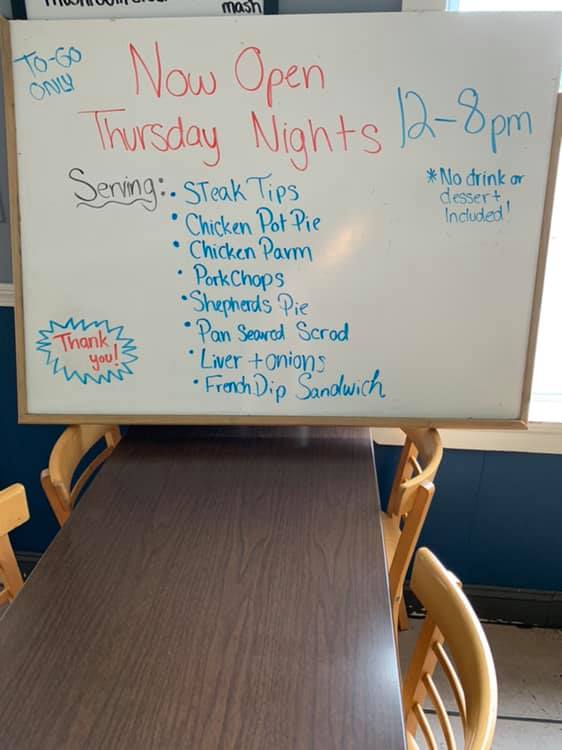 mash
TO-GO
ONLY
Now Open
Thursday Nights
12-8pm
*No drink or
dessert
Included!
Serving:
• STeak Tips
• Chicken Pot Pie
• Chicken Parm
• Pork Chops
• Shepherds Pie
• Pan Seared Scrod
• Liver + onions
• French Dip Sandwich
Thank
you!